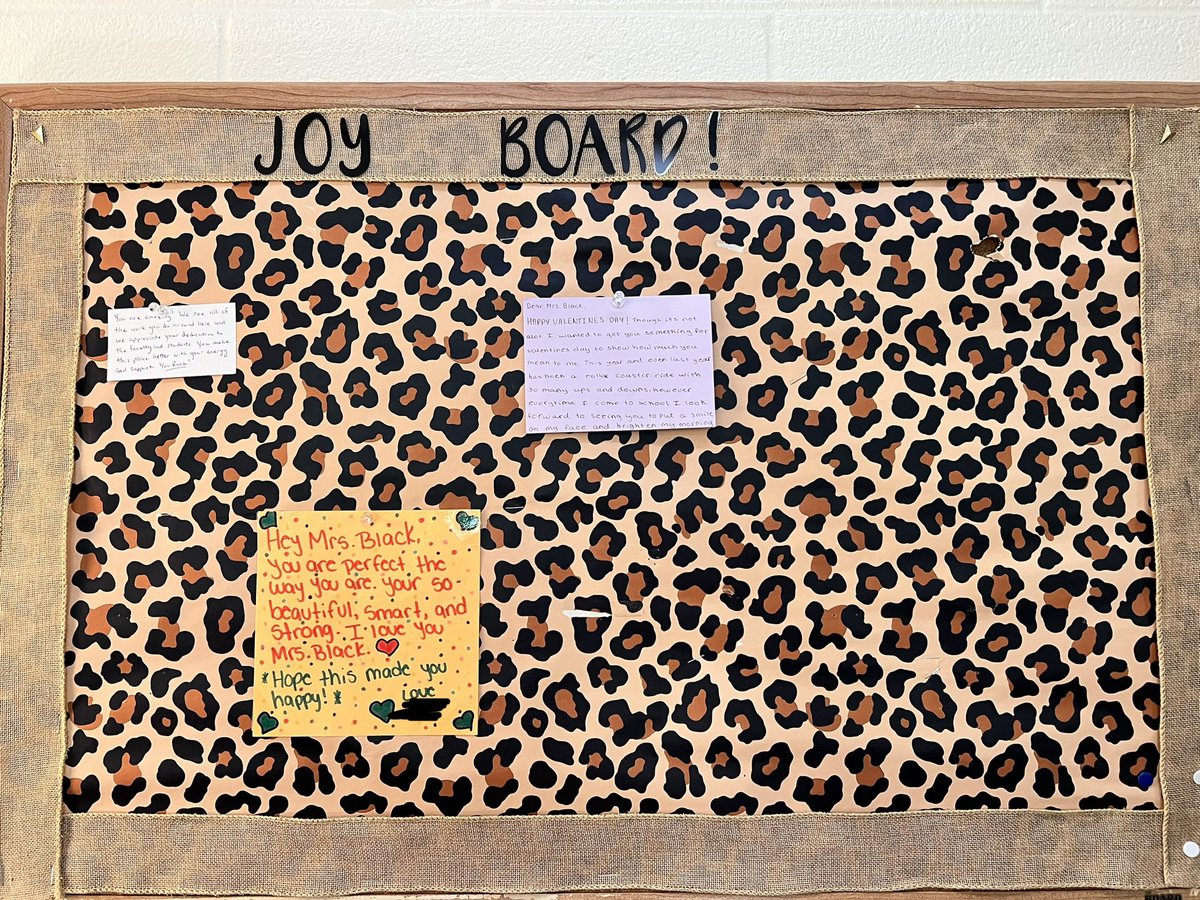 JOY BOARD!
You are amazing! We see all of
the work you do around here and
we appreciate your dedication to
the faculty and students. You make
this place better with your energy
and support. You Rock
Dear Mrs. Black,
HAPPY VALENTINES DAY! Though its not
alot I wanted to get you something for
valentines day to show how much you
mean to me. This year and even last year
has been a roller coaster ride with
so many ups and downs. however
everytime I come to school I look
forward to seeing you to put a smile
on my face and brighten my morning
Hey Mrs. Black,
You are perfect the
way you are. your so
beautiful, smart, and
strong. I love you
Mrs. Black.
*Hope this made you
happy! *
love
BOARD